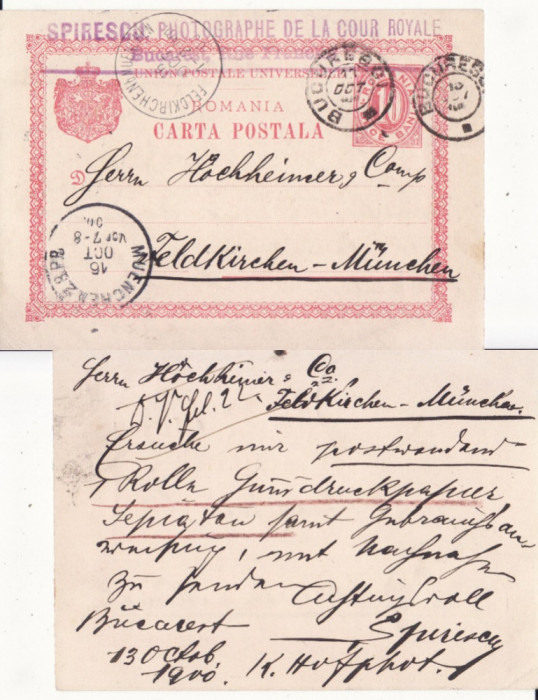 SPIRESCU, PHOTOGRAPHE DE LA COUR ROYALE
Bucarest
UNION POSTALE UNIVERSELLE
FELDKIRCHEN
BUCURESCI
OCT
BUCURESCI
10
ROMANIA
CARTA POSTALA
D
Herrn Höchheimer & Comp
Feldkirchen-München
MUENCHEN 2 B.P.
16
OCT
Vor 7-8
Herrn Höchheimer & Co.
Feldkirchen-München.
Ersuche mir postwendend
1 Rolle Gummidruckpapier
Sepiaton samt Gebrauchsan-
weisung, mit Nachnahme
zu senden
Achtungsvoll
Bucarest
Spirescu
13 Octob.
1900.
K. Hofphot.